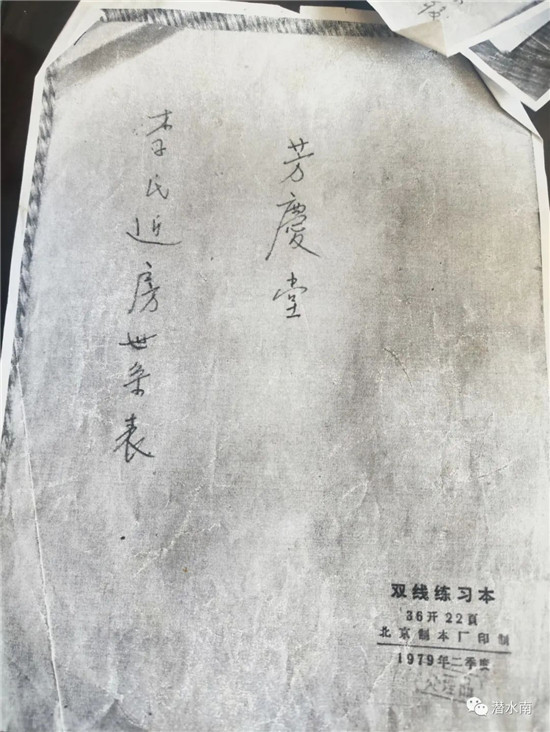 芳慶堂
李氏近房世系表
双线练习本
36开22頁
北京制本厂印制
1979年二季度
处理品
潜水南